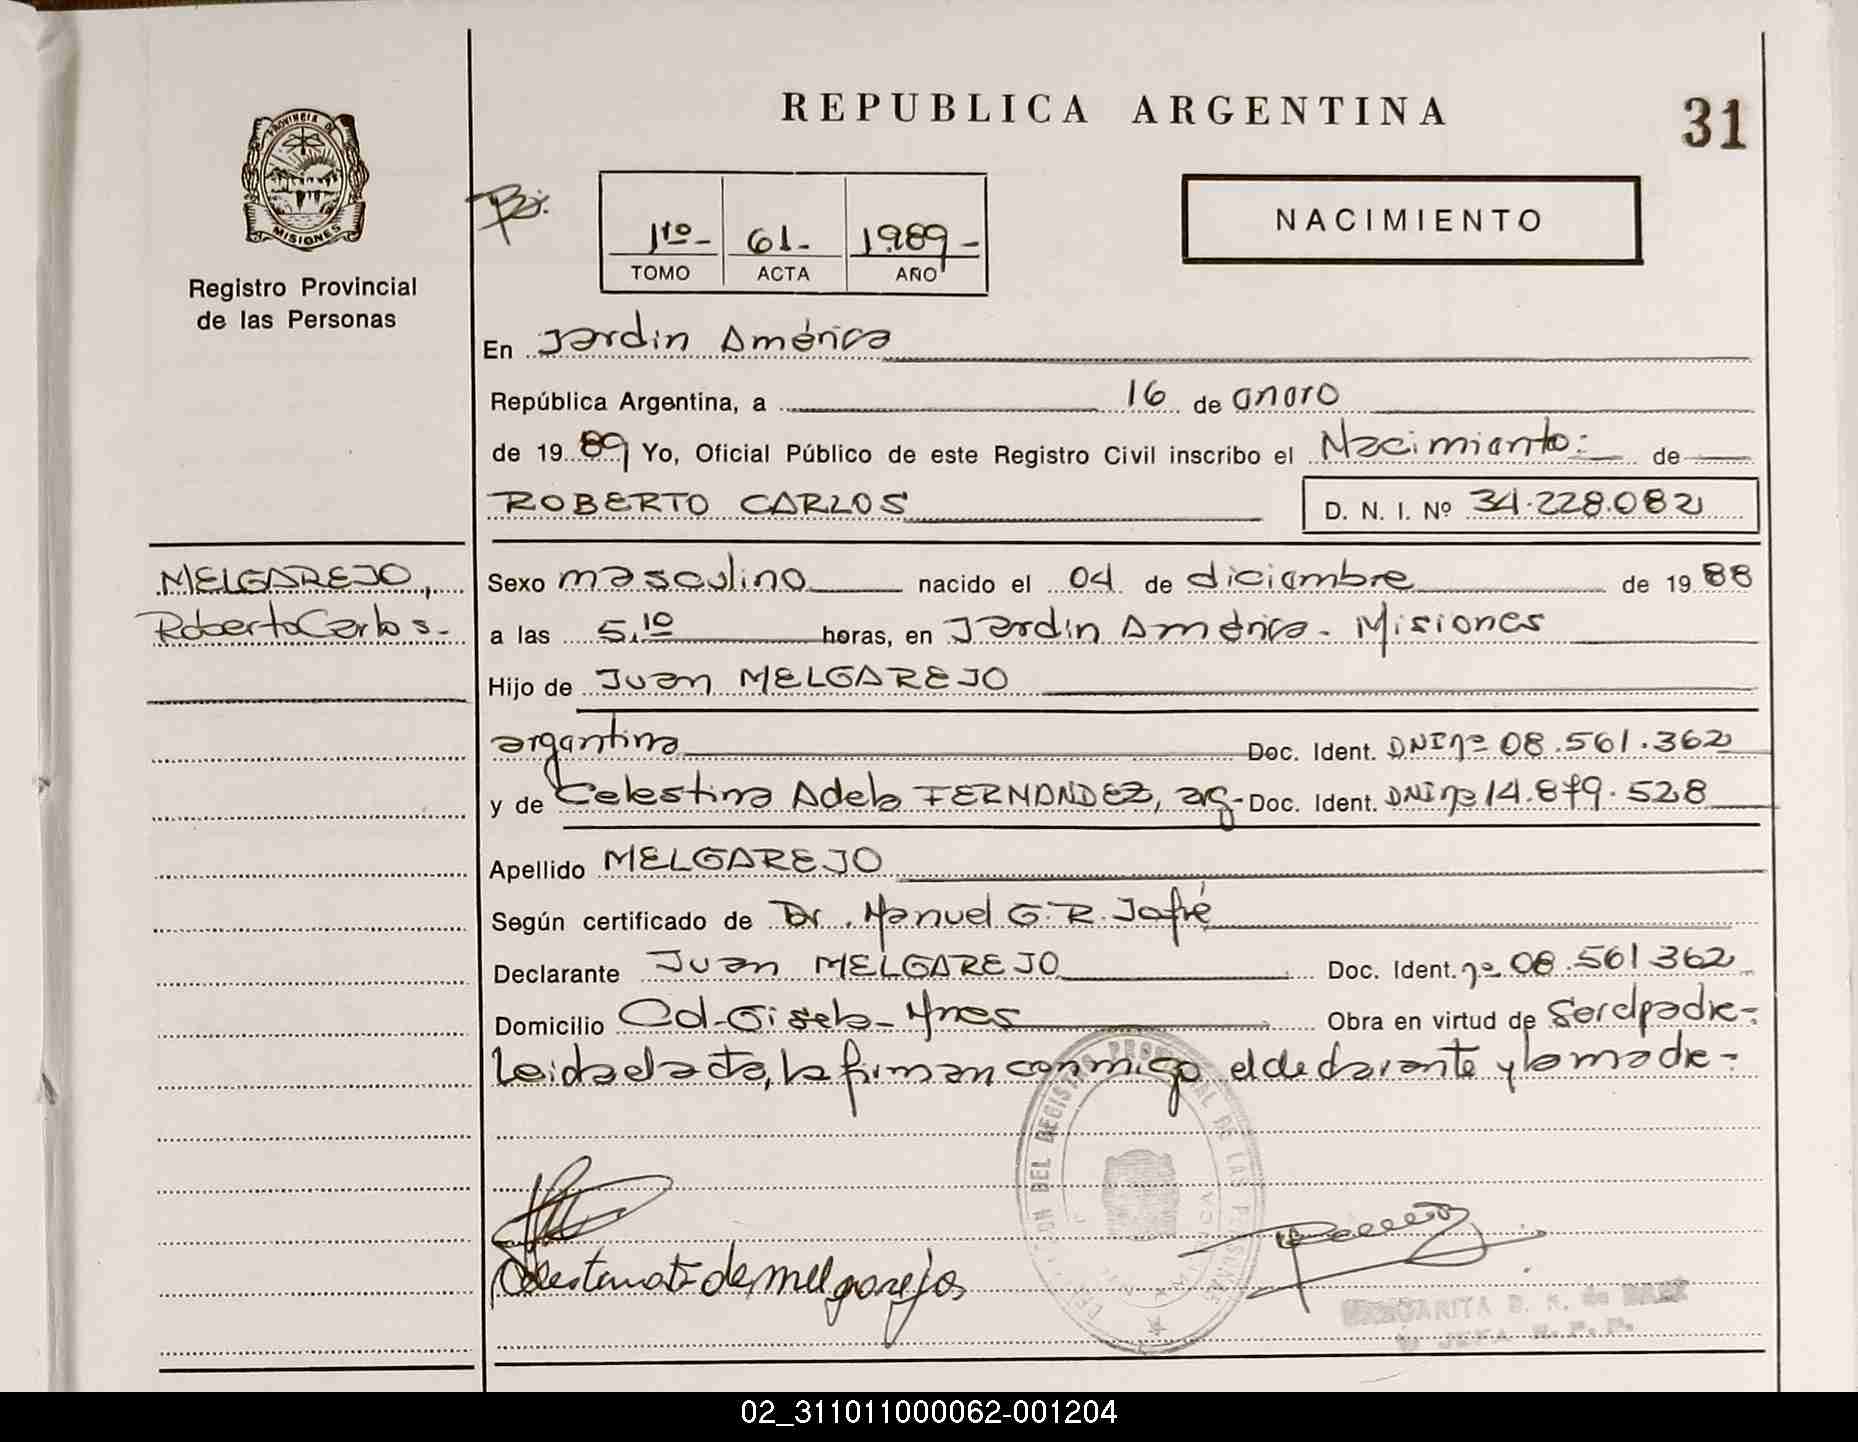 REPUBLICA ARGENTINA
31
PROVINCIA DE
MISIONES
Registro Provincial
de las Personas
1ro- 61- 1989-
TOMO ACTA AÑO
NACIMIENTO
En Jardin América
República Argentina, a 16 de enero
de 1989 Yo, Oficial Público de este Registro Civil inscribo el Nacimiento: de
ROBERTO CARLOS D. N. I. Nº 34.228.082
MELGAREJO,
Roberto Carlos.-
Sexo masculino nacido el 04 de diciembre de 1988
a las 5,10 horas, en Jardin América - Misiones
Hijo de Juan MELGAREJO
argentina Doc. Ident. DNI nº 08.561.362
y de Celestina Adela FERNANDEZ, arg- Doc. Ident. DNI nº 14.879.528
Apellido MELGAREJO
Según certificado de Dr. Manuel G. R. Jofré
Declarante Juan MELGAREJO Doc. Ident. nº 08.561362
Domicilio Cd-Gisela-Ynes Obra en virtud de Ser el padre-
Leida el acta, la firman conmigo el declarante y la madre-
de melgarejo
MARGARITA B. K. de BAEZ
JEFA R. P. P.
02_311011000062-001204